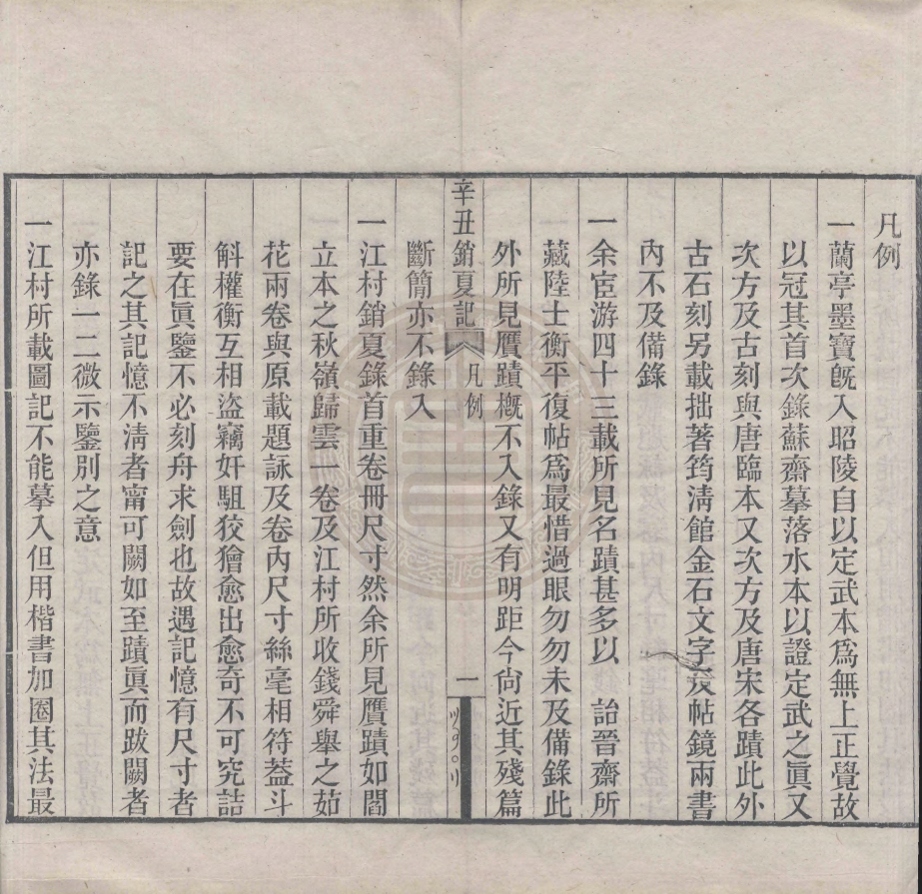 凡例
一蘭亭墨寶旣入昭陵自以定武本爲無上正覺故
以冠其首次錄蘇齋摹落水本以證定武之眞又
次方及古刻與唐臨本又次方及唐宋各蹟此外
古石刻另載拙著筠淸館金石文字及帖鏡兩書
內不及備錄
一余宦游四十三載所見名蹟甚多以　詒晉齋所
藏陸士衡平復帖爲最惜過眼勿勿未及備錄此
外所見贗蹟槪不入錄又有明距今尙近其殘篇
辛丑銷夏記　凡例　一
斷簡亦不錄入
一江村銷夏錄首重卷冊尺寸然余所見贗蹟如閻
立本之秋嶺歸雲一卷及江村所收錢舜舉之茹
花兩卷與原載題詠及卷內尺寸絲毫相符葢斗
斛權衡互相盜竊奸駔狡獪愈出愈奇不可究詰
要在眞鑒不必刻舟求劍也故遇記憶有尺寸者
記之其記憶不淸者甯可闕如至蹟眞而跋闕者
亦錄一二微示鑒別之意
一江村所載圖記不能摹入但用楷書加圈其法最